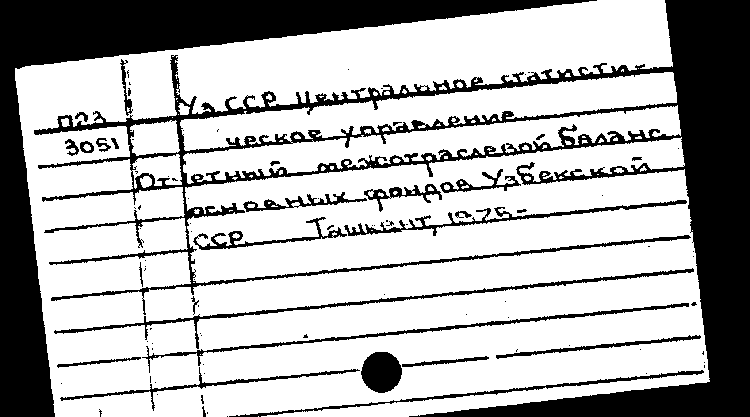 П23 УзССР Центральное статисти-
3051 ческое управление.
Отчетный межотраслевой баланс
основных фондов Узбекской
ССР. Ташкент, 1975-